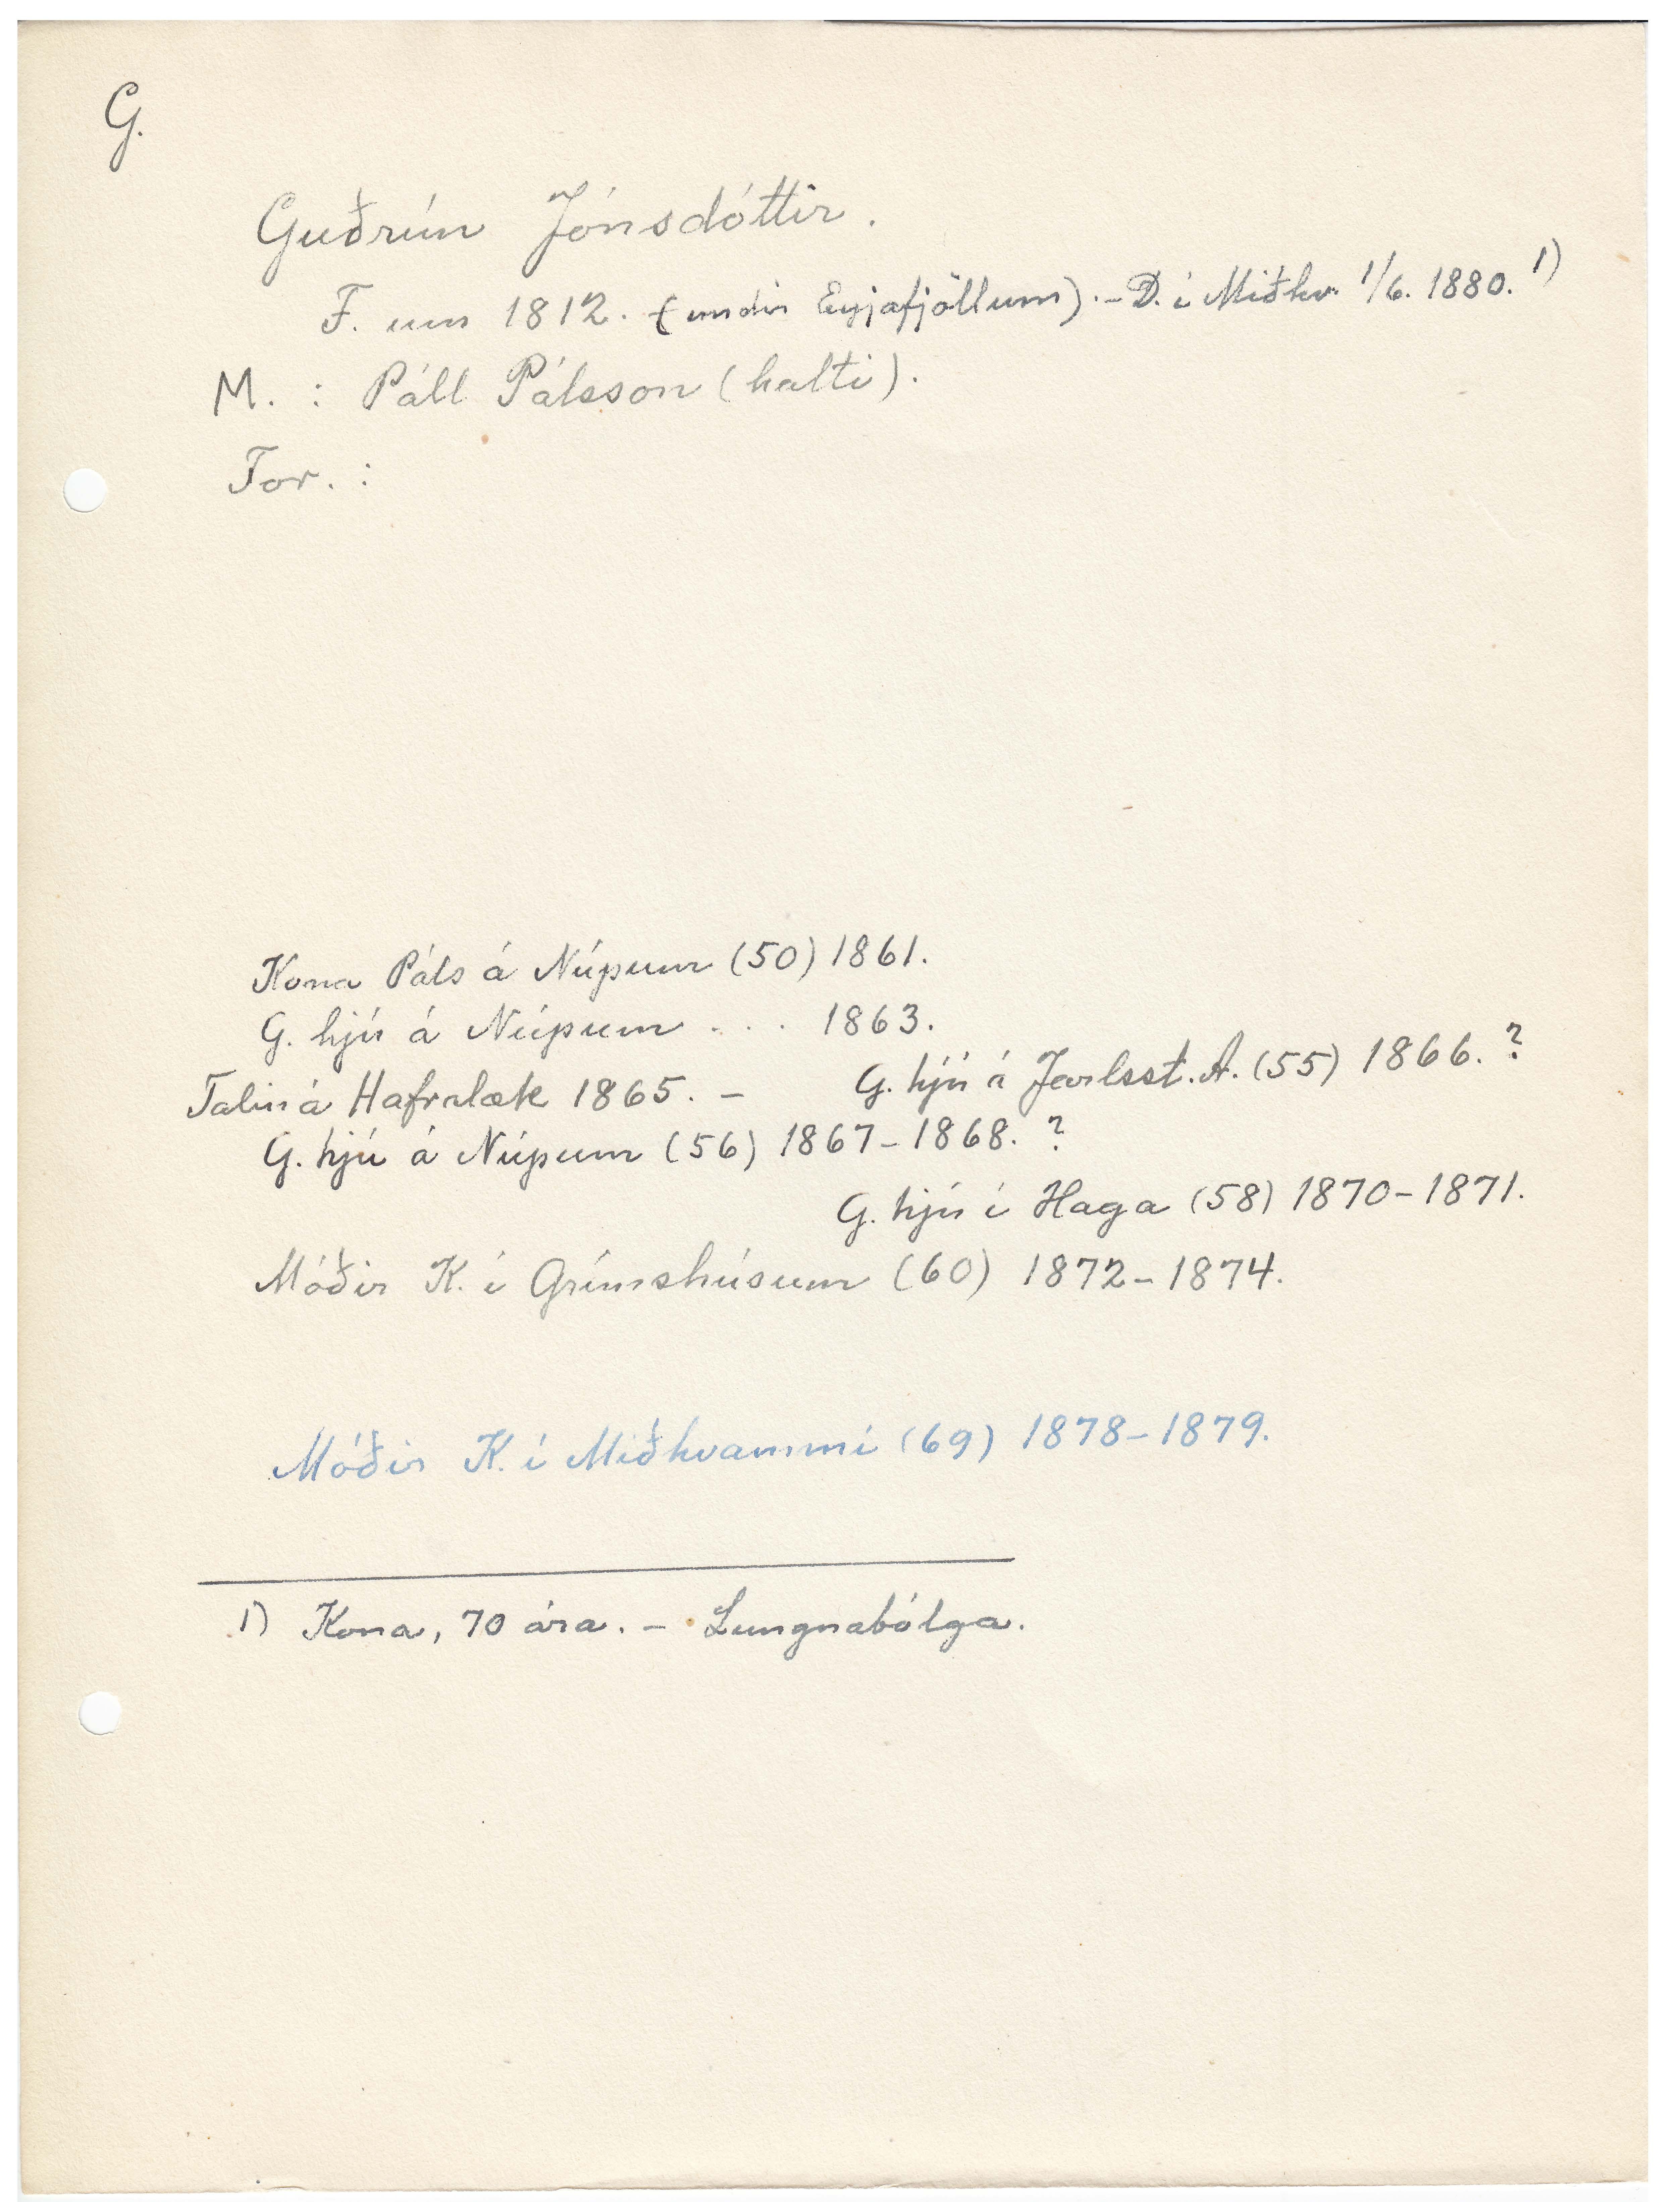 G.
Guðrún Jónsdóttir.
F. um 1812. (undir Eyjafjöllum). - D. í Miðhv. 1/6. 1880. 1)
M. : Páll Pálsson (halti).
For. :
Kona Páls á Núpum (50) 1861.
G. hjú á Núpum . . . 1863.
Talin á Hafralæk 1865. - G. hjú á Jarlsst. A. (55) 1866. ?
G. hjú á Núpum (56) 1867-1868. ?
G. hjú í Haga (58) 1870-1871.
Móðir K. í Grímshúsum (60) 1872-1874.
Móðir K. í Miðhvammi (69) 1878-1879.
1) Kona, 70 ára. - Lungnabólga.